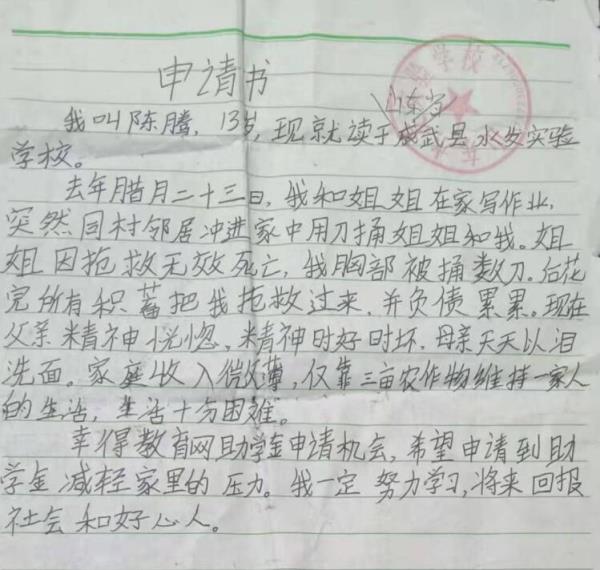 申请书
山东省
我叫陈腾，13岁，现就读于成武县永发实验
学校。
去年腊月二十三日，我和姐姐在家写作业，
突然同村邻居冲进家中用刀捅姐姐和我。姐
姐因抢救无效死亡，我胸部被捅数刀。后花
完所有积蓄把我抢救过来，并负债累累。现在
父亲精神恍惚，精神时好时坏，母亲天天以泪
洗面。家庭收入微薄，仅靠三亩农作物维持一家人
的生活，生活十分困难。
幸得教育网助学金申请机会，希望申请到助
学金减轻家里的压力。我一定努力学习，将来回报
社会和好心人。
学校